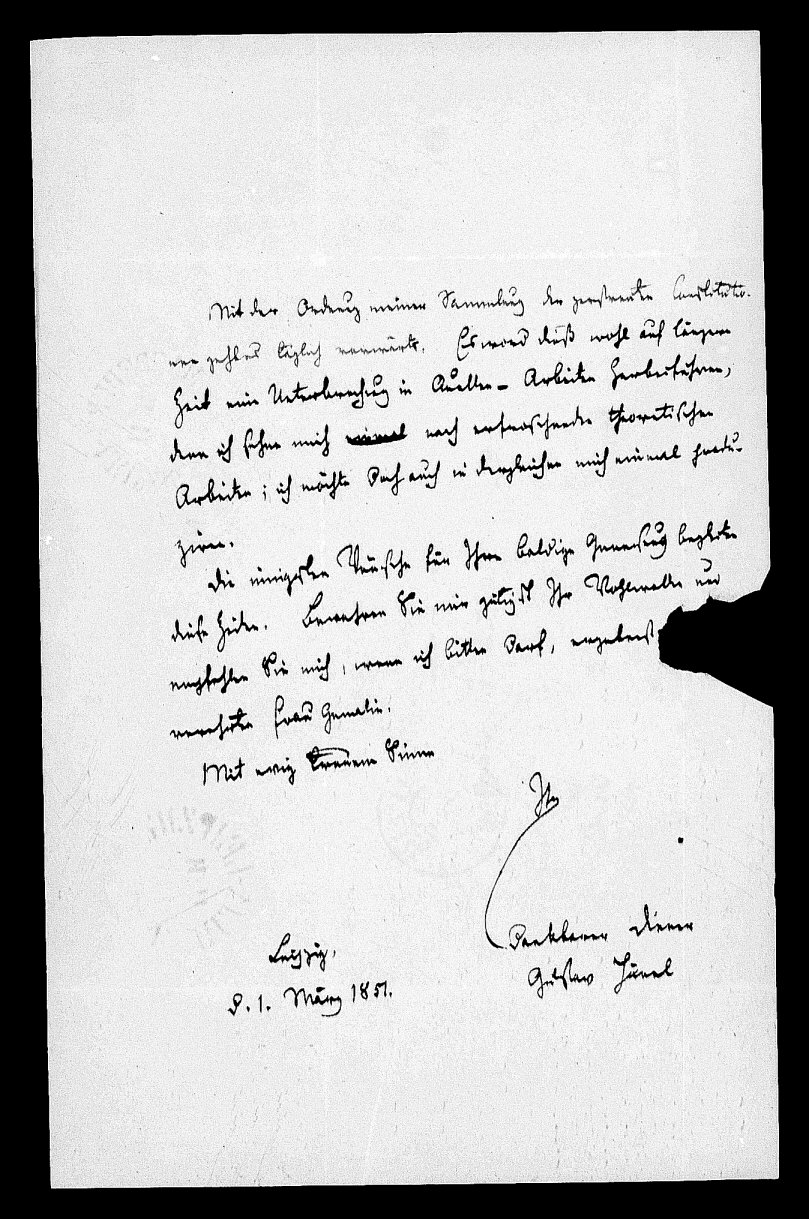 Mit der Ordnung meiner Sammlung der zerstreuten Constitutio-
nen geht es täglich vorwärts. Es wird dieß wohl auf längere
Zeit eine Unterbrechung in Quellen-Arbeiten herbeiführen,
denn ich sehne mich nach erfrischenden theoretischen
Arbeiten; ich möchte doch auch in dergleichen mich einmal produ-
ziren.
Die innigsten Wünsche für Ihre baldige Genesung begleiten
diese Zeilen. Bewahren Sie mir gütigst Ihr Wohlwollen und
empfehlen Sie mich, wenn ich bitten darf, ergebenst
verehrten Frau Gemalin.
Mit ewig treuem Sinne
Ihr
Dankbarer Diener
Gustav Hänel
Leipzig,
d. 1. März 1851.